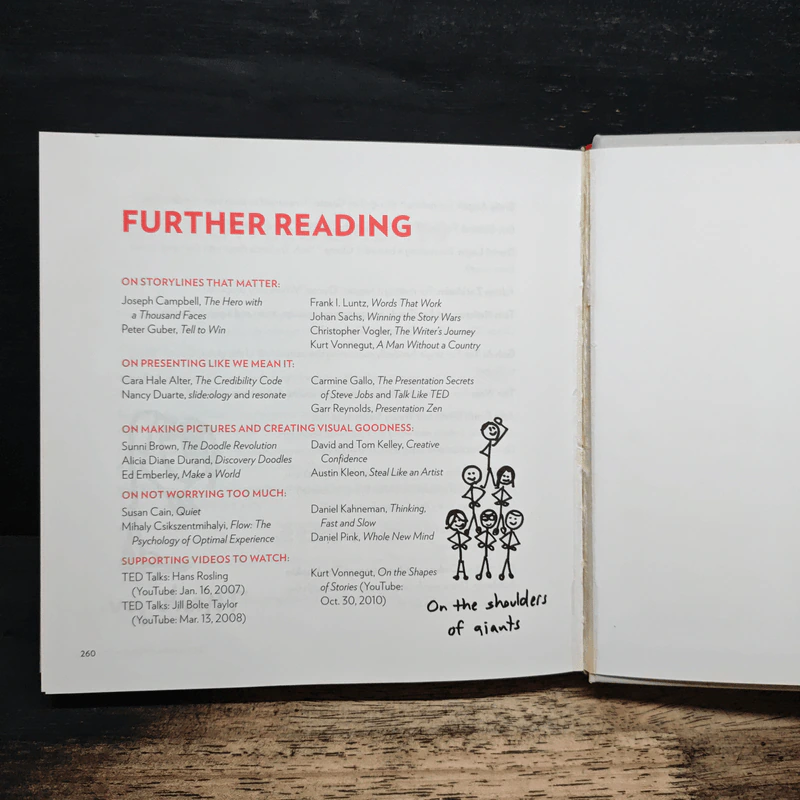 FURTHER READING
ON STORYLINES THAT MATTER:
Joseph Campbell, The Hero with
a Thousand Faces
Peter Guber, Tell to Win
Frank I. Luntz, Words That Work
Johan Sachs, Winning the Story Wars
Christopher Vogler, The Writer's Journey
Kurt Vonnegut, A Man Without a Country
ON PRESENTING LIKE WE MEAN IT:
Cara Hale Alter, The Credibility Code
Nancy Duarte, slide:ology and resonate
Carmine Gallo, The Presentation Secrets
of Steve Jobs and Talk Like TED
Garr Reynolds, Presentation Zen
ON MAKING PICTURES AND CREATING VISUAL GOODNESS:
Sunni Brown, The Doodle Revolution
Alicia Diane Durand, Discovery Doodles
Ed Emberley, Make a World
David and Tom Kelley, Creative
Confidence
Austin Kleon, Steal Like an Artist
ON NOT WORRYING TOO MUCH:
Susan Cain, Quiet
Mihaly Csikszentmihalyi, Flow: The
Psychology of Optimal Experience
Daniel Kahneman, Thinking,
Fast and Slow
Daniel Pink, Whole New Mind
SUPPORTING VIDEOS TO WATCH:
TED Talks: Hans Rosling
(YouTube: Jan. 16, 2007)
TED Talks: Jill Bolte Taylor
(YouTube: Mar. 13, 2008)
Kurt Vonnegut, On the Shapes
of Stories (YouTube:
Oct. 30, 2010)
On the shoulders
of giants
260